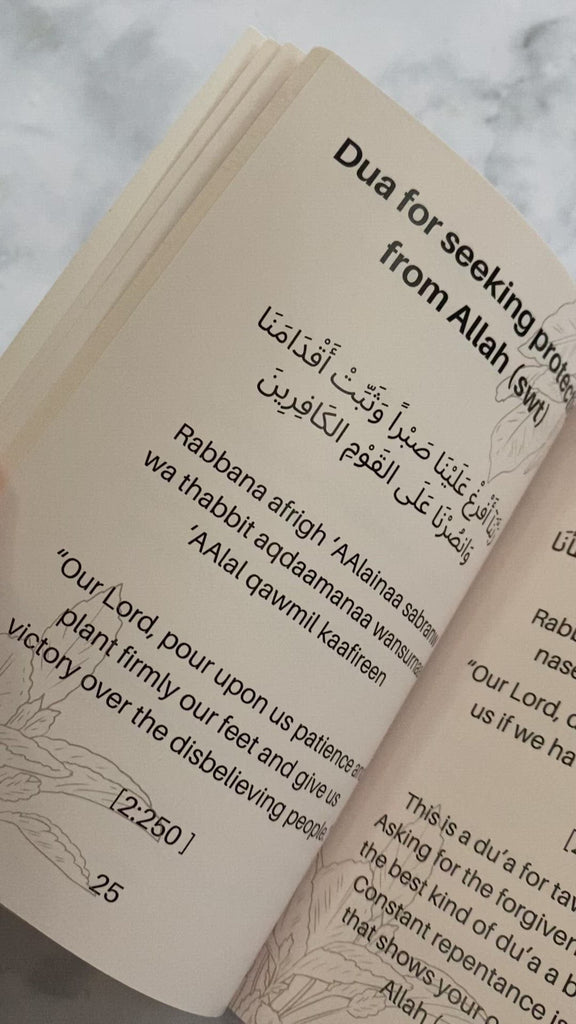 Dua for seeking protec
from Allah (swt)
رَبَّنَا أَفْرِغْ عَلَيْنَا صَبْراً وَثَبِّتْ أَقْدَامَنَا
وَانصُرْنَا عَلَى القَوْمِ الكَافِرِينَ
Rabbana afrigh ‘AAlainaa sabranw
wa thabbit aqdaamanaa wansurnaa
‘AAlal qawmil kaafireen
“Our Lord, pour upon us patience an
plant firmly our feet and give us
victory over the disbelieving people.
[2:250 ]
25
Rabb
nase
“Our Lord, d
us if we ha
This is a du’a for taw
Asking for the forgiven
the best kind of du’a a b
Constant repentance is
that shows your
Allah (